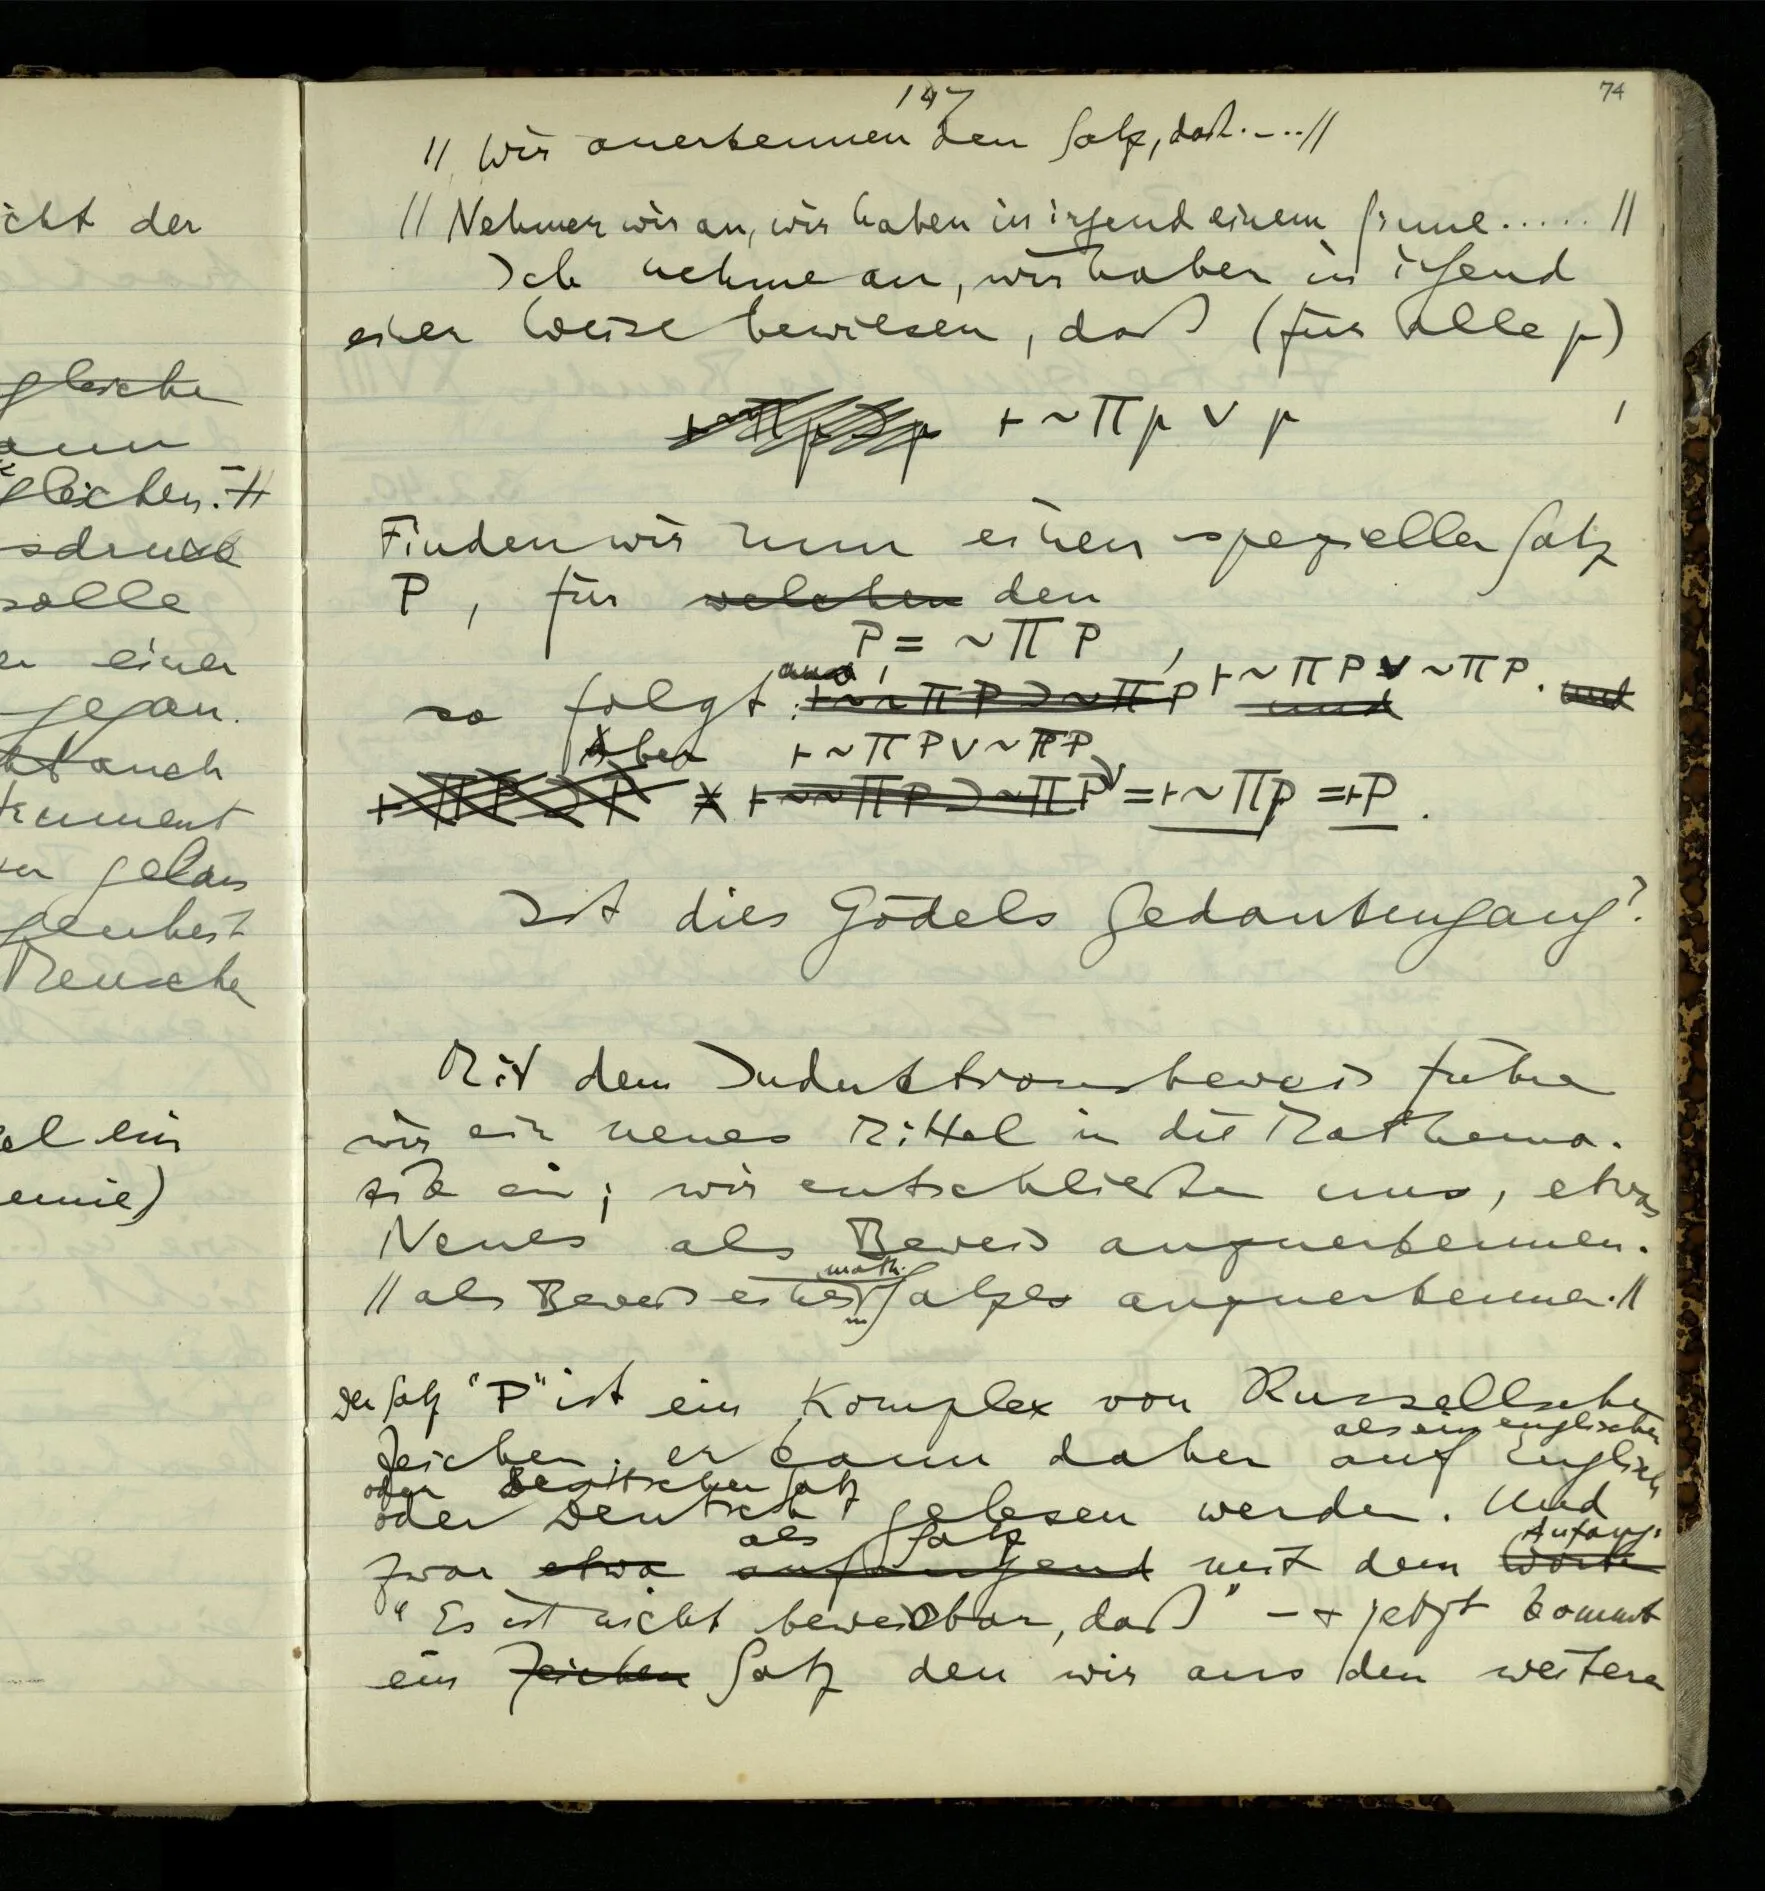 icht der
gleiche
ann
gleichen. – //
sdruck
solle
er einer
gegan.
auch
trument
gelan
Mensche
el ein
emie)
147
74
// Wir anerkennen den Satz, daß....//
// Nehmen wir an, wir haben in irgend einem Sinne..... //
Ich nehme an, wir haben in irgend
einer Weise bewiesen, daß (für alle p)
⊢ ~Πp ⊃ p ⊢ ~Πp ∨ p
Finden wir nun einen speziellen Satz
P, für welchen den
P = ~ΠP,
so folgt ⊢ ~~ΠP ⊃ ~ΠP und ⊢ ~ΠP ∨ ~ΠP. und
Aber ⊢ ~ΠP ∨ ~ΠP
⊢ ΠP ⊃ P ⊢ ~~ΠP ⊃ ~ΠP = ⊢ ~Πp = ⊢ P.
Ist dies Gödels Gedankengang?
Mit dem Induktionsbeweis führen
wir ein neues Mittel in die Mathema-
tik ein; wir entschließen uns, etwas
Neues als Beweis anzuerkennen.
math.
// als Beweis eines Satzes anzuerkennen. //
Der Satz "P" ist ein Komplex von Russellschen
als ein englischer
Zeichen; er kann daher auf Englisch
oder deutscher Satz
oder Deutsch gelesen werden. Und
als Satz Anfang:
zwar etwa anfangend mit dem Worte
"Es ist nicht beweisbar, daß" – + jetzt kommt
ein Zeichen Satz den wir aus den weiteren